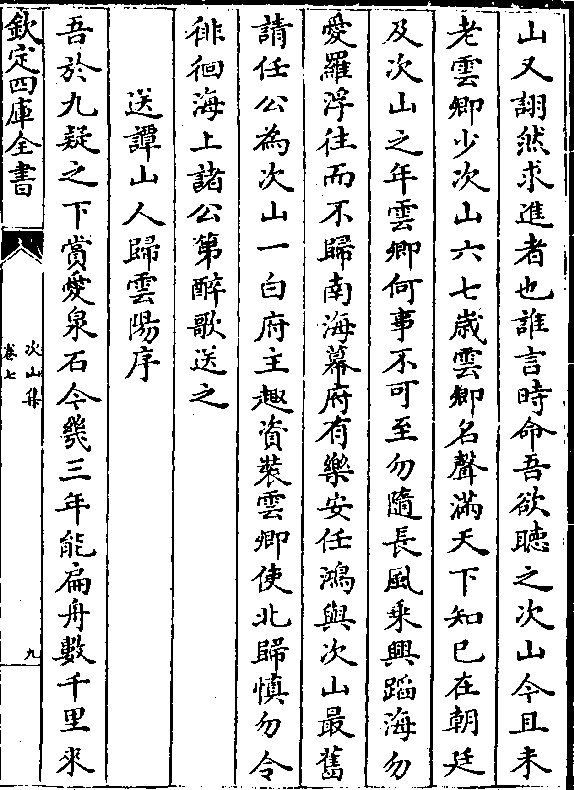 山又翮然求進者也誰言時命吾欲聽之次山今且未
老雲卿少次山六七歳雲卿名聲滿天下知已在朝廷
及次山之年雲卿何事不可至勿隨長風乘興蹈海勿
愛羅浮往而不歸南海幕府有樂安任鴻與次山最舊
請任公為次山一白府主趣資裝雲卿使北歸慎勿令
徘徊海上諸公第醉歌送之
送譚山人歸雲陽序
吾於九疑之下賞愛泉石今幾三年能扁舟數千里來
欽定四庫全書
次山集
卷七
九